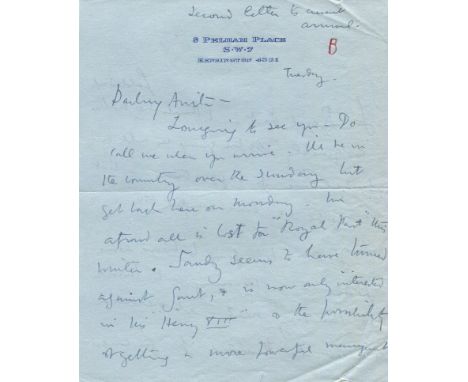 Second letter to await
arrival.
8 Pelham Place
S·W·7
Kensington 4321
B
Tuesday.
Darling Anita –
Longing to see you. Do
call me when you arrive. I'll be in
the country over the Sunday but
get back here on Monday. I'm
afraid all is lost for "Royal Hunt" this
winter. Sandy seems to have turned
against , & is now only interested
in his Henry VIII & the possibility
of getting a more powerful